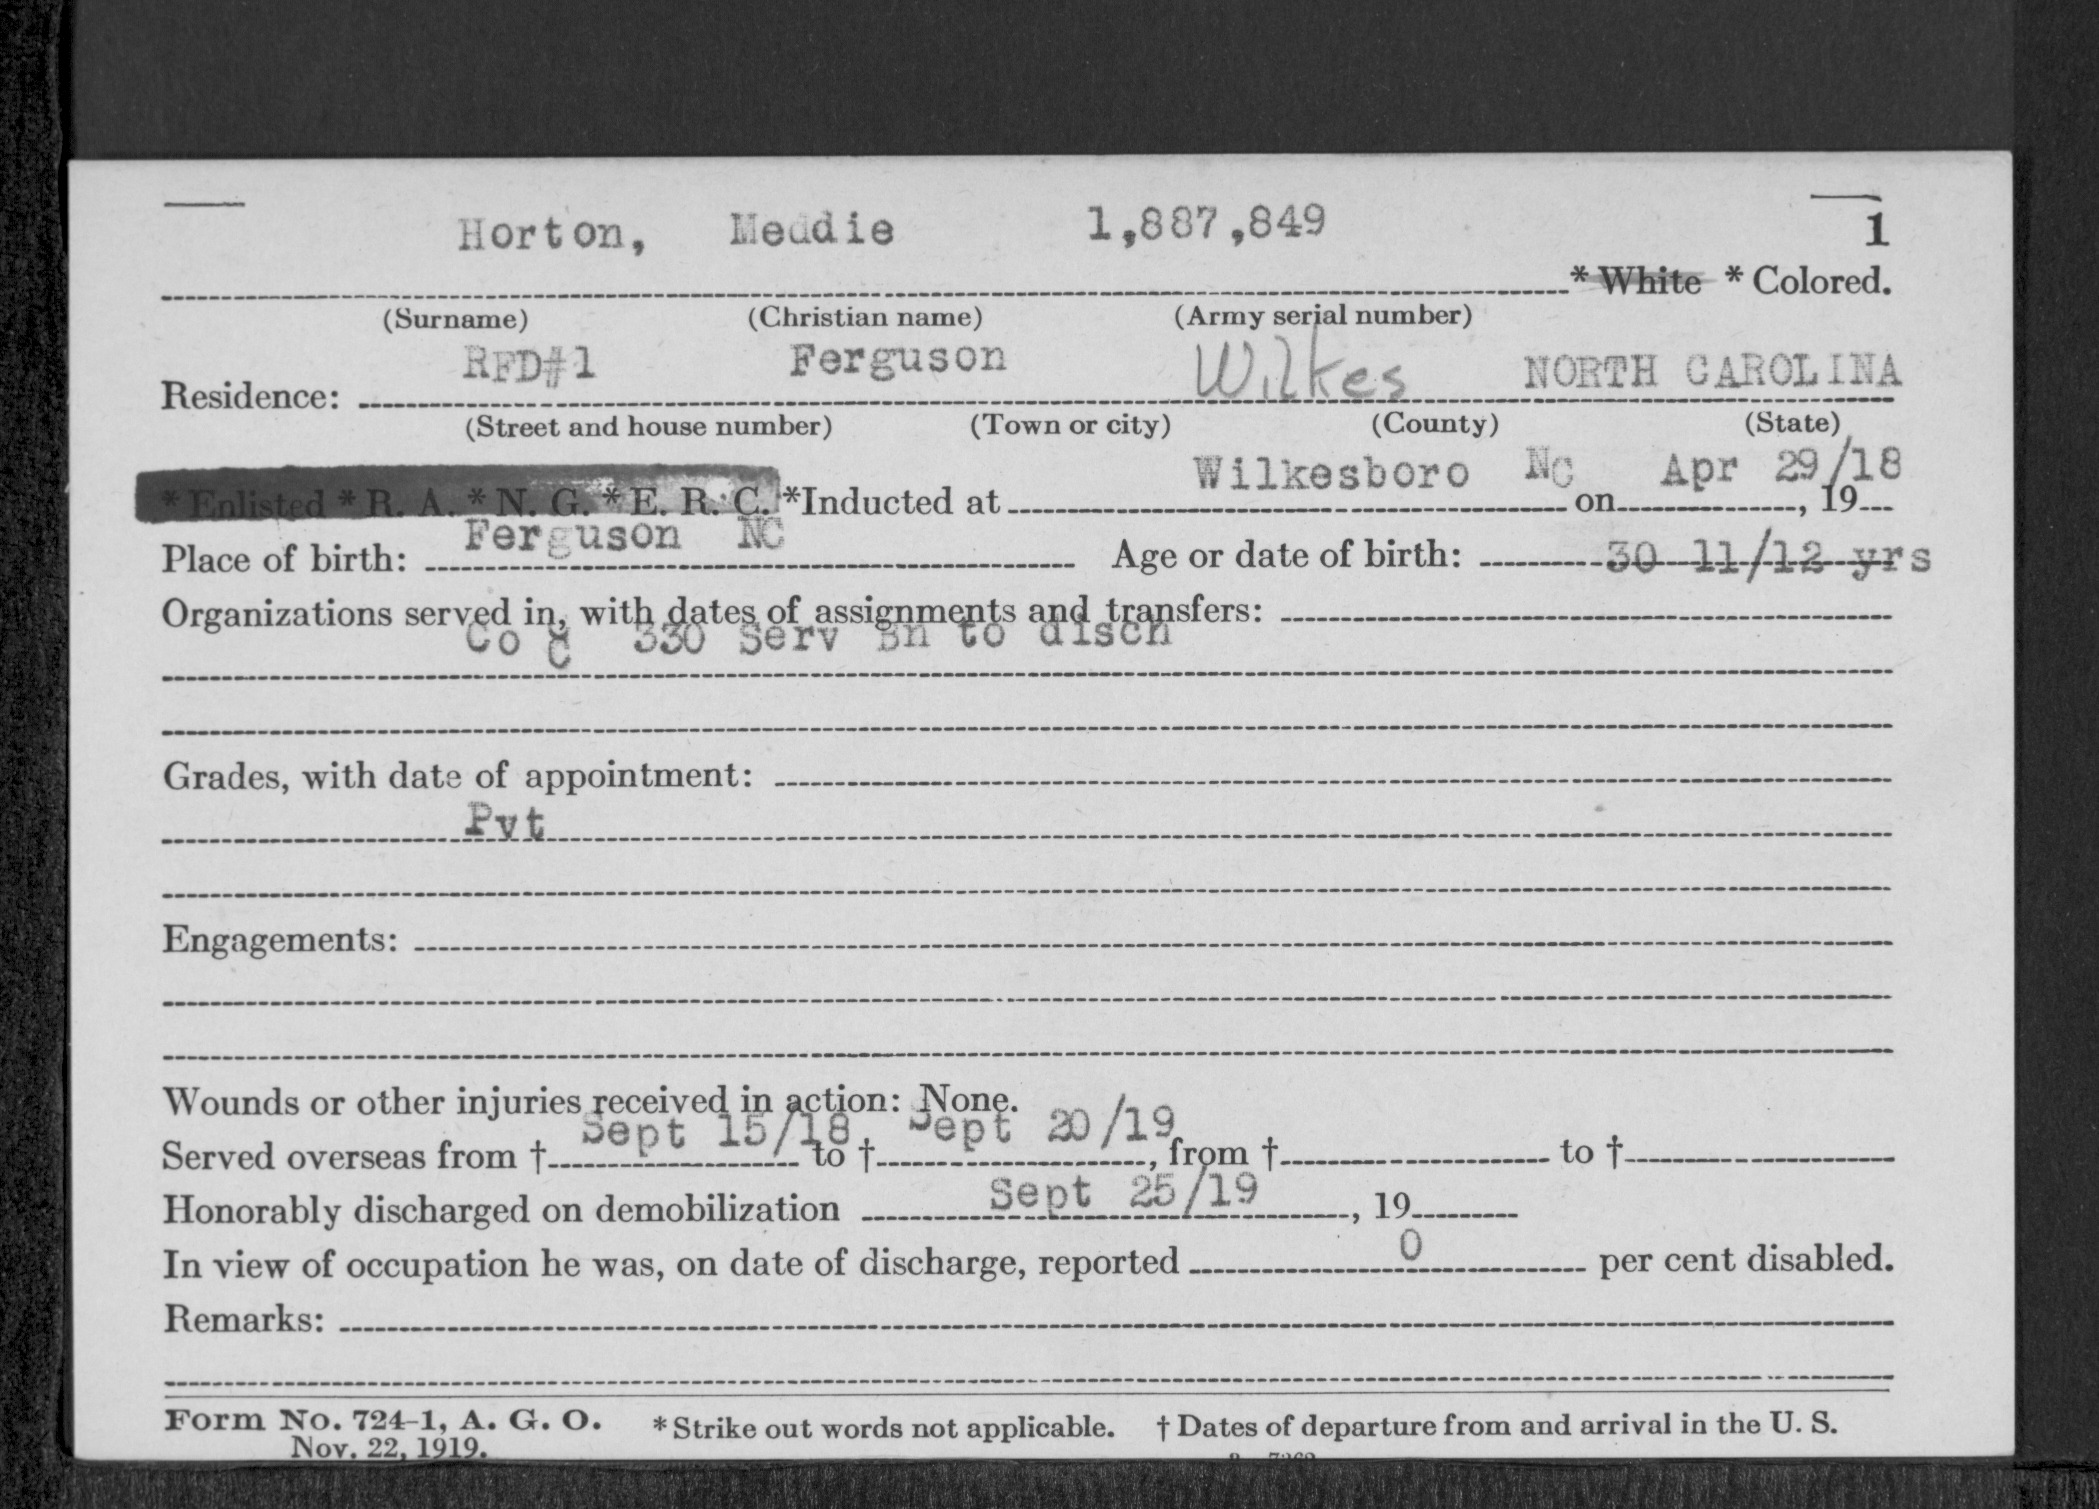 Horton, Meddie 1,887,849 1
* White * Colored.
(Surname) (Christian name) (Army serial number)
RFD#1 Ferguson Wilkes NORTH CAROLINA
Residence:
(Street and house number) (Town or city) (County) (State)
Wilkesboro NC Apr 29/18
* Enlisted * R. A. * N. G. * E. R. C. *Inducted at on , 19
Ferguson NC
Place of birth: Age or date of birth: 30 11/12 yrs
Organizations served in, with dates of assignments and transfers:
Co C 330 Serv Bn to disch
Grades, with date of appointment:
Pvt
Engagements:
Wounds or other injuries received in action: None.
Sept 15/18 Sept 20/19
Served overseas from † to † , from † to †
Sept 25/19
Honorably discharged on demobilization , 19
In view of occupation he was, on date of discharge, reported 0 per cent disabled.
Remarks:
Form No. 724-1, A. G. O. * Strike out words not applicable. † Dates of departure from and arrival in the U. S.
Nov. 22, 1919.